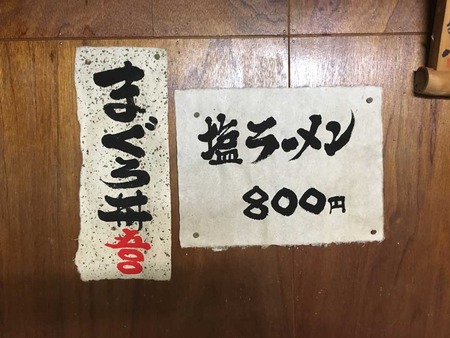 まぐろ丼
塩ラーメン
800円